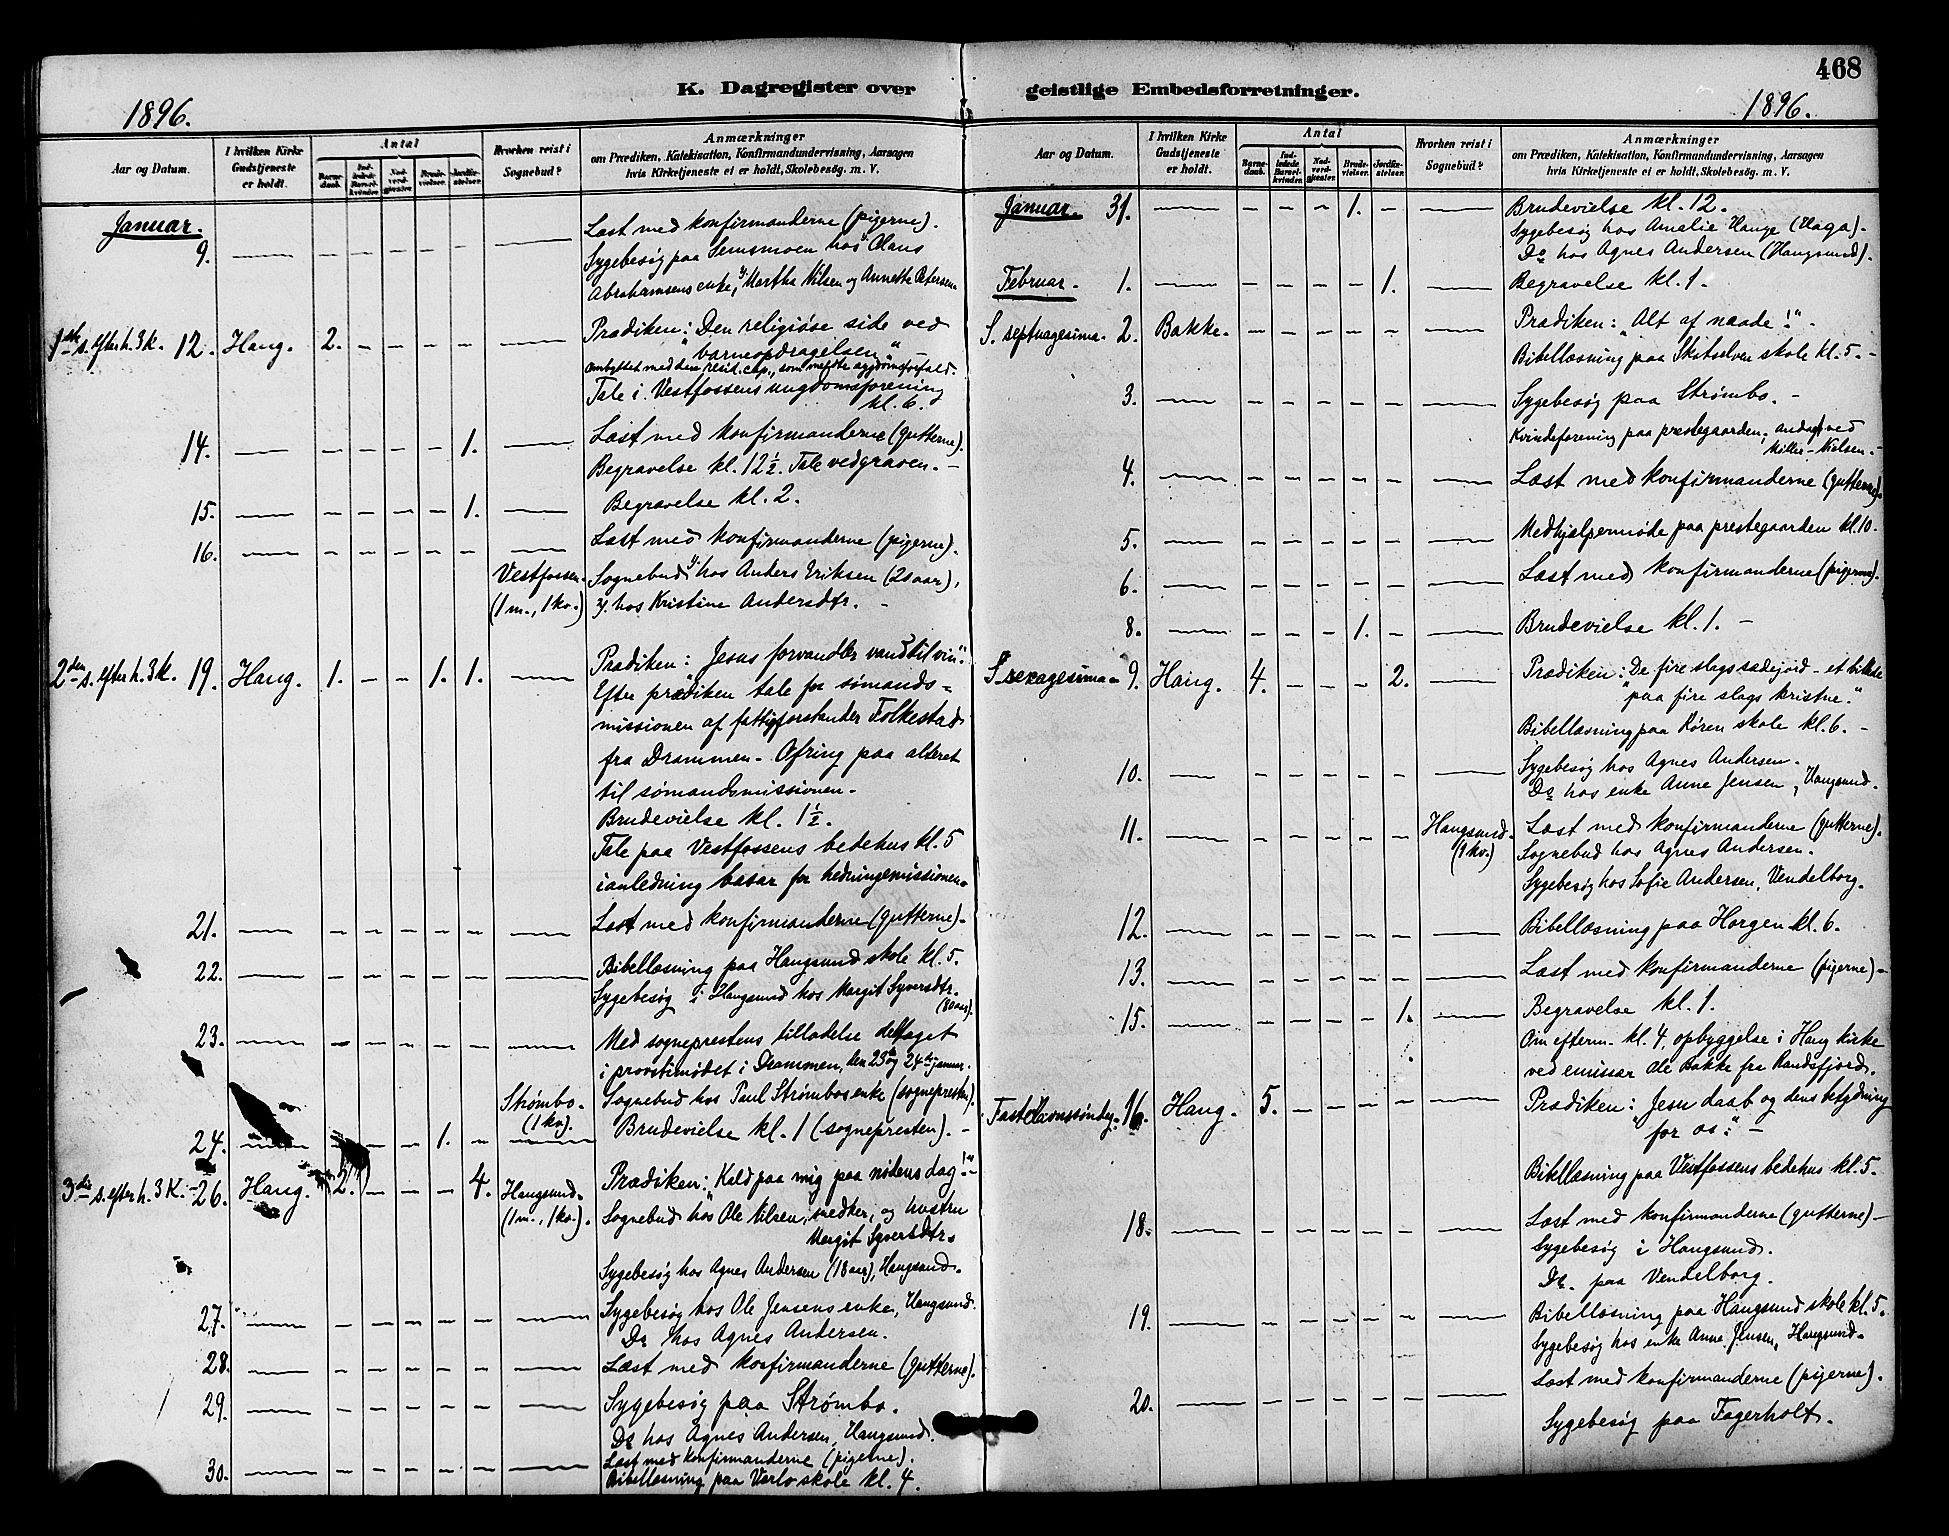 468
K. Dagregister over geistlige Embedsforretninger.
1896.
1896.
Aar og Datum.
I hvilken Kirke Gudstjeneste er holdt.
Antal
Barne-daab.
Ind-ledede Barsel-kvinder.
Nad-verd-gjester.
Brude-vielser.
Jordfæ-stelser.
Hvorhen reist i Sognebud?
Anmærkninger
om Prædiken, Katekisation, Konfirmandundervisning, Aarsagen
hvis Kirketjeneste ei er holdt, Skolebesøg. m. V.
Januar.
9. — — — — — — — Læst med konfirmanderne (pigerne).
Sygebesøg paa Semsmoen hos Olaus
Abrahamsens enke, Martha Nilsen og Annette Petersen
1ste s. efter h. 3 k. 12. Haug. 2. — — — — — Prædiken: "Den religiøse side ved
barneopdragelsen" —
ombyttet med den resid. cap., som meldte sygdomsforfald.
Tale i Vestfossens ungdomsforening
kl. 6.
14. — — — — — 1. — Læst med konfirmanderne (gutterne).
Begravelse kl. 12 1/2. Tale ved graven. —
15. — — — — — 1. — Begravelse kl. 2.
16. — — — — — — — Læst med konfirmanderne (pigerne).
Vestfossen. Sognebud 1/ hos Anders Eriksen (2s aar),
(1 m., 1 kv.) 2/ hos Kristine Andersdtr. —
2den s. efter h. 3 K. 19. Haug. 1. — — 1. 1. — Prædiken: "Jesus forvandler vand til vin".
Efter prædiken tale for sømands=
missionen af fattigforstander Folkestad
fra Drammen - Ofring paa alteret
til sømandsmissionen.
Brudevielse kl. 1 1/2.
Tale paa Vestfossens bedehus kl. 5
i anledning basar for hedningemissionen.
21. — — — — — — — Læst med konfirmanderne (gutterne).
22. — — — — — — — Bibellæsning paa Haugsund skole kl. 5.
Sygebesøg i Haugsund hos Margit Syversdtr.
(80 aar).
23. — — — — — — — Med sogneprestens tilladelse deltaget
i provstimødet i Drammen, den 23de og 24de januar.
Strømbo. Sognebud hos Paul Strømbos enke (sognepresten).
(1 kv.)
24. — — — — 1. — — Brudevielse kl. 1 (sognepresten). —
3die s. efter h. 3 K. 26. Haug. 2. — — — 4. Haugsund. Prædiken: "Kald paa mig paa nødens dag!" —
(1 m., 1 kv.). Sognebud hos Ole Nilsen, snedker, og hustru
Margit Syversdtr.
Sygebesøg hos Agnes Andersen (18 aar), Haugsund.
27. — — — — — — — Sygebesøg hos Ole Jensens enke, Haugsund.
Do hos Agnes Andersen.
28. — — — — — — — Læst med konfirmanderne (gutterne).
29. — — — — — — — Sygebesøg paa Strømbo.
Do hos Agnes Andersen, Haugsund.
30. — — — — — — — Læst med konfirmanderne (pigerne).
Bibellæsning paa Varlo skole kl. 4.
Aar og Datum.
I hvilken Kirke Gudstjeneste er holdt.
Antal
Barne-daab.
Ind-ledede Barsel-kvinder.
Nad-verd-gjester.
Brude-vielser.
Jordfæ-stelser.
Hvorhen reist i Sognebud?
Anmærkninger
om Prædiken, Katekisation, Konfirmandundervisning, Aarsagen
hvis Kirketjeneste ei er holdt, Skolebesøg. m. V.
Januar. 31. — — — — 1. — — Brudevielse kl. 12.
Sygebesøg hos Amalie Hauge (Haga).
Do hos Agnes Andersen (Haugsund).
Februar. 1. — — — — — 1. — Begravelse kl. 1.
S. septuagesima. 2. Bakke. — — — — — — Prædiken: "Alt af naade!" —
Bibellæsning paa Skotselven skole kl. 5. —
3. — — — — — — — Sygebesøg paa Strømbo. —
Kvindeforening paa prestegaarden, andagt ved
Møller-Nielsen. —
4. — — — — — — — Læst med konfirmanderne (gutterne).
5. — — — — — — — Medhjælpermøde paa prestegaarden kl. 10.
6. — — — — — — — Læst med konfirmanderne (pigerne).
8. — — — — 1. — — Brudevielse kl. 1. —
S. sexagesima 9. Haug. 4. — — — 2. — Prædiken: "De fire slags sædejord - et billede
paa fire slags kristne."
Bibellæsning paa Røren skole kl. 6. —
10. — — — — — — — Sygebesøg hos Agnes Andersen.
Do hos enke Anne Jensen, Haugsund.
11. — — — — — — Haugsund. Læst med konfirmanderne (gutterne).
(1 kv.) Sognebud hos Agnes Andersen.
Sygebesøg hos Sofie Andersen, Vendelborg.
12. — — — — — — — Bibellæsning paa Horgen kl. 6.
13. — — — — — — — Læst med konfirmanderne (pigerne) —
15. — — — — — 1. — Begravelse kl. 1.
Om efterm. kl. 4, opbyggelse i Haug kirke
ved emissær Ole Bakke fra Randsfjord.
Fastelavnssøndag. 16. Haug. 5. — — — — — Prædiken: "Jesu daab og dens betydning
for os." —
Bibellæsning paa Vestfossens bedehus kl. 5.
18. — — — — — — — Læst med konfirmanderne (gutterne) —
Sygebesøg i Haugsund.
Do. paa Vendelborg.
19. — — — — — — — Bibellæsning paa Haugsund skole kl. 5.
Sygebesøg hos enke Anne Jensen, Haugsund.
20. — — — — — — — Læst med konfirmanderne (pigerne).
Sygebesøg paa Fagerholt.